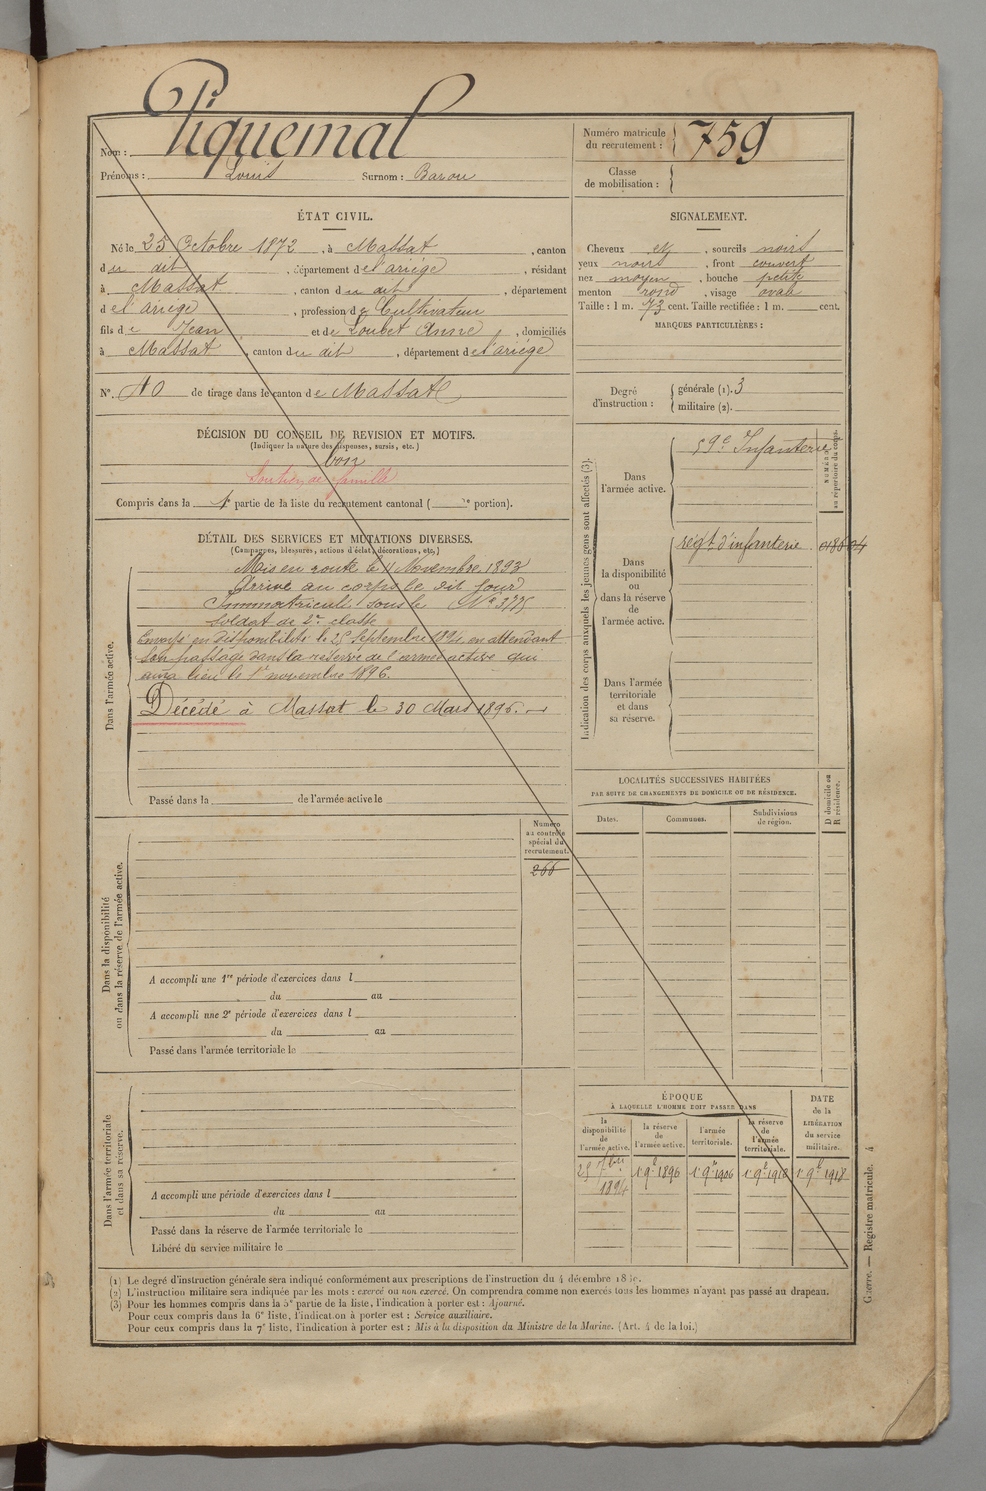 Nom : Piquemal
Prénoms : Louis Surnom : Baron
Numéro matricule du recrutement : 759
Classe de mobilisation :
ÉTAT CIVIL.
Né le 25 Octobre 1872, à Massat, canton
du dit, département de l'ariège, résidant
à Massat, canton du dit, département
de l'ariège, profession de Cultivateur
fils de Jean et de Loubet Anne, domiciliés
à Massat, canton du dit, département de l'ariége
N°. 40 de tirage dans le canton de Massat
SIGNALEMENT.
Cheveux et, sourcils noirs
yeux noirs, front couvert
nez moyen, bouche petite
menton rond, visage ovale
Taille : 1 m. 73 cent. Taille rectifiée : 1 m. cent.
MARQUES PARTICULIÈRES :
Degré d'instruction : générale (1). 3
militaire (2).
DÉCISION DU CONSEIL DE REVISION ET MOTIFS.
(Indiquer la nature des dispenses, sursis, etc.)
bon
Soutien de famille
Compris dans la 4e partie de la liste du recrutement cantonal ( 2e portion).
DÉTAIL DES SERVICES ET MUTATIONS DIVERSES.
(Campagnes, blessures, actions d'éclat, décorations, etc.)
Dans l'armée active.
Mis en route le 11 Novembre 1893
Arrivé au corps le dit jour
Immatriculé sous le N°
Soldat de 2e classe
Envoyé en disponibilité le 25 Septembre 1894 en attendant
son passage dans la réserve de l'armée active qui
aura lieu le 1er novembre 1896.
Décédé à Massat le 30 Mars 1896.
Passé dans la de l'armée active le
Indication des corps auxquels les jeunes gens sont affectés (3).
Dans l'armée active.
59e Infanterie
NUMÉRO au répertoire du corps.
Dans la disponibilité ou dans la réserve de l'armée active.
régt d'infanterie
Dans l'armée territoriale et dans sa réserve.
LOCALITÉS SUCCESSIVES HABITÉES
PAR SUITE DE CHANGEMENTS DE DOMICILE OU DE RÉSIDENCE.
Dates. Communes. Subdivisions de région. D domicile ou R résidence.
Numéro au contrôle spécial du recrutement.
266
Dans la disponibilité ou dans la réserve de l'armée active.
A accompli une 1re période d'exercices dans l
du au
A accompli une 2e période d'exercices dans l
du au
Passé dans l'armée territoriale le
Dans l'armée territoriale et dans sa réserve.
A accompli une période d'exercices dans l
du au
Passé dans la réserve de l'armée territoriale le
Libéré du service militaire le
ÉPOQUE
À LAQUELLE L'HOMME DOIT PASSER DANS
la disponibilité de l'armée active. la réserve de l'armée active. l'armée territoriale. la réserve de l'armée territoriale. DATE de la LIBÉRATION du service militaire.
25 7bre 1894 1er 9bre 1896 1er 9bre 1906 1er 9bre 1912 1er 9bre 1918
(1) Le degré d'instruction générale sera indiqué conformément aux prescriptions de l'instruction du 4 décembre
(2) L'instruction militaire sera indiquée par les mots : exercé ou non exercé. On comprendra comme non exercés tous les hommes n'ayant pas passé au drapeau.
(3) Pour les hommes compris dans la 5e partie de la liste, l'indication à porter est : Ajourné.
Pour ceux compris dans la 6e liste, l'indication à porter est : Service auxiliaire.
Pour ceux compris dans la 7e liste, l'indication à porter est : Mis à la disposition du Ministre de la Marine. (Art. 4 de la loi.)
Guerre. — Registre matricule. 4